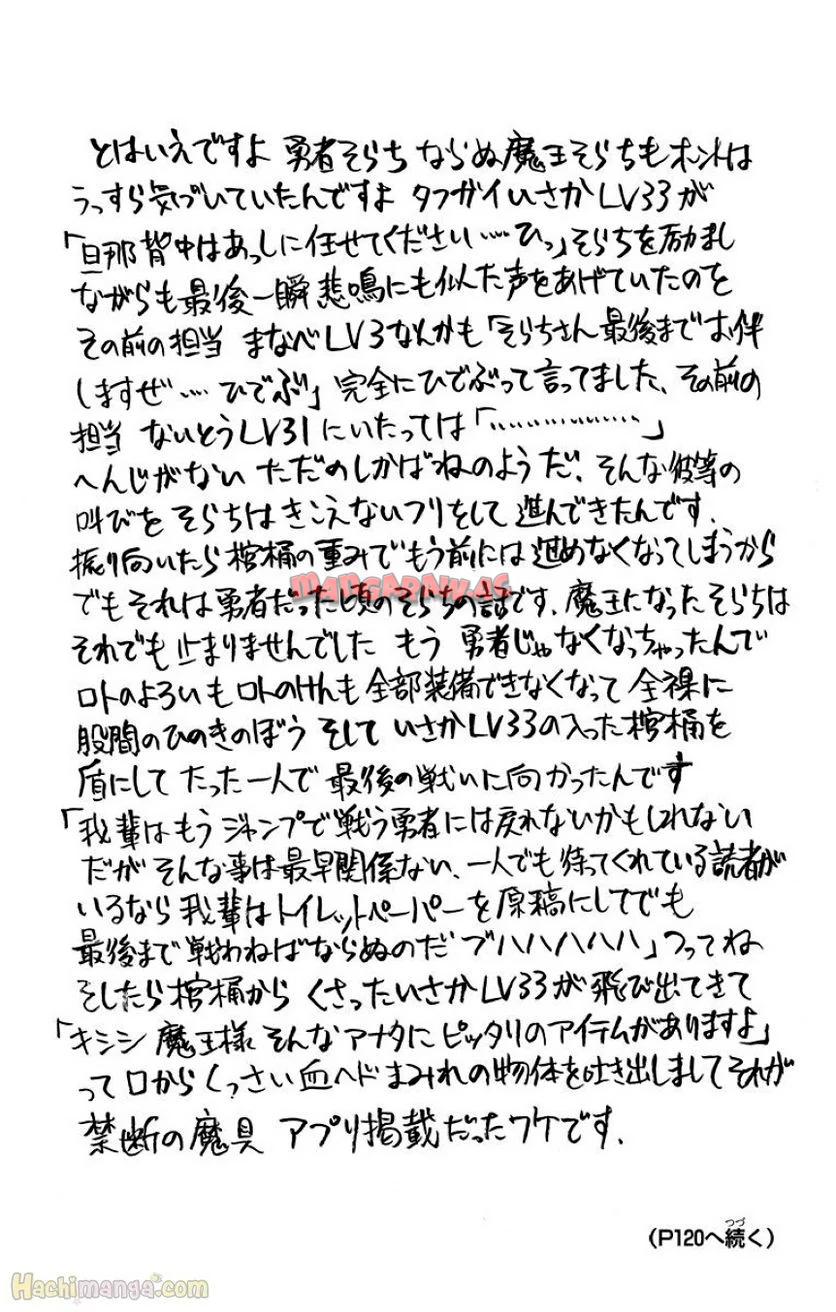 とはいえですよ 勇者そらち ならぬ魔王そらちもホントは
うっすら気づいていたんですよ タフガイいさかLV33が
「旦那背中はあっしに任せてください……ひっ」そらちを励まし
ながらも最後一瞬悲鳴にも似た声をあげていたのを
その前の担当 まなべLV3なんかも「そらちさん最後までお伴
しますぜ…. ひでぶ」完全にひでぶって言ってました、その前の
担当 ないとうLV31にいたっては「……………」
へんじがない ただのしかばねのようだ、そんな彼等の
叫びを そらちはきこえないフリをして 進んできたんです.
振り向いたら棺桶の重みでもう前には進めなくなってしまうから
でもそれは勇者だった頃のそらちの話です、魔王になったそらちは
それでも止まりませんでした もう 勇者じゃなくなっちゃったんで
ロトのよろいもロトのけんも全部装備できなくなって 全裸に
股間のひのきのぼう そして いさかLV33の入った棺桶を
盾にして たった一人で 最後の戦いに向かったんです
「我輩はもう ジャンプで戦う勇者には戻れないかもしれない
だが そんな事は最早関係ない、一人でも待ってくれている読者が
いるなら 我輩はトイレットペーパーを原稿にしてでも
最後まで 戦わねばならぬのだ ブハハハハハ」つってね
そしたら棺桶から くさったいさかLV33が飛び出てきて
「キシシ 魔王様 そんなアナタに ピッタリのアイテムがありますよ」
って口からくっさい血ヘドまみれの物体を吐き出しまして それが
禁断の魔具 アプリ掲載だったワケです.
(P120へ続く)
つづ
MANGARNW.AS
Hachimanga.com